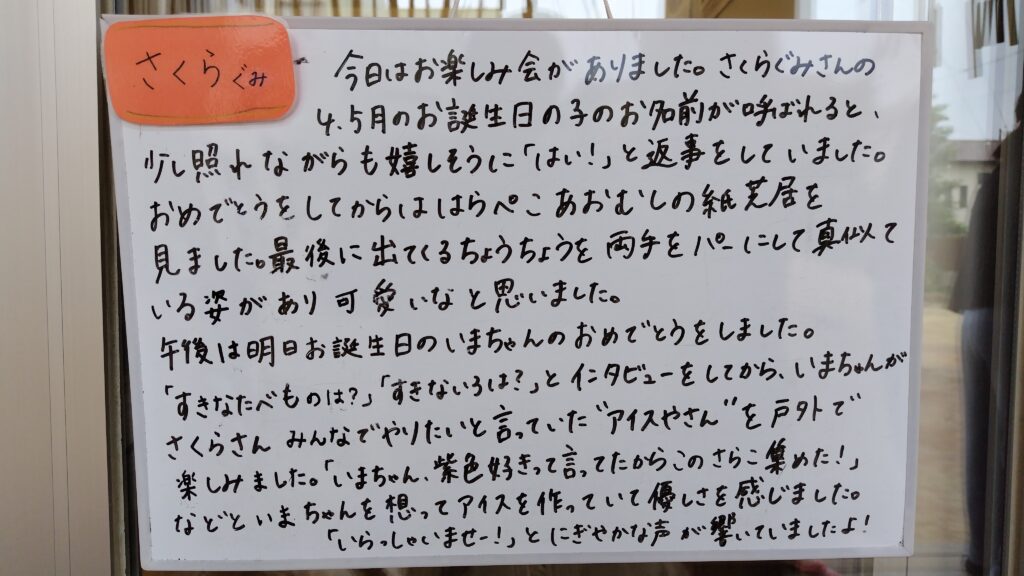 さくらぐみ
今日はお楽しみ会がありました。さくらぐみさんの
4.5月のお誕生日の子のお名前が呼ばれると、
少し照れながらも嬉しそうに「はい!」と返事をしていました。
おめでとうをしてからははらぺこあおむしの紙芝居を
見ました。最後に出てくるちょうちょうを両手をパーにして真似て
いる姿があり可愛いなと思いました。
午後は明日お誕生日のいまちゃんのおめでとうをしました。
「すきなたべものは?」「すきないろは?」とインタビューをしてから、いまちゃんが
さくらさんみんなでやりたいと言っていた"アイスやさん"を戸外で
楽しみました。「いまちゃん、紫色好きって言ってたからこのさらこ集めた!」
などといまちゃんを想ってアイスを作っていて優しさを感じました。
「いらっしゃいませー!」とにぎやかな声が響いていましたよ!